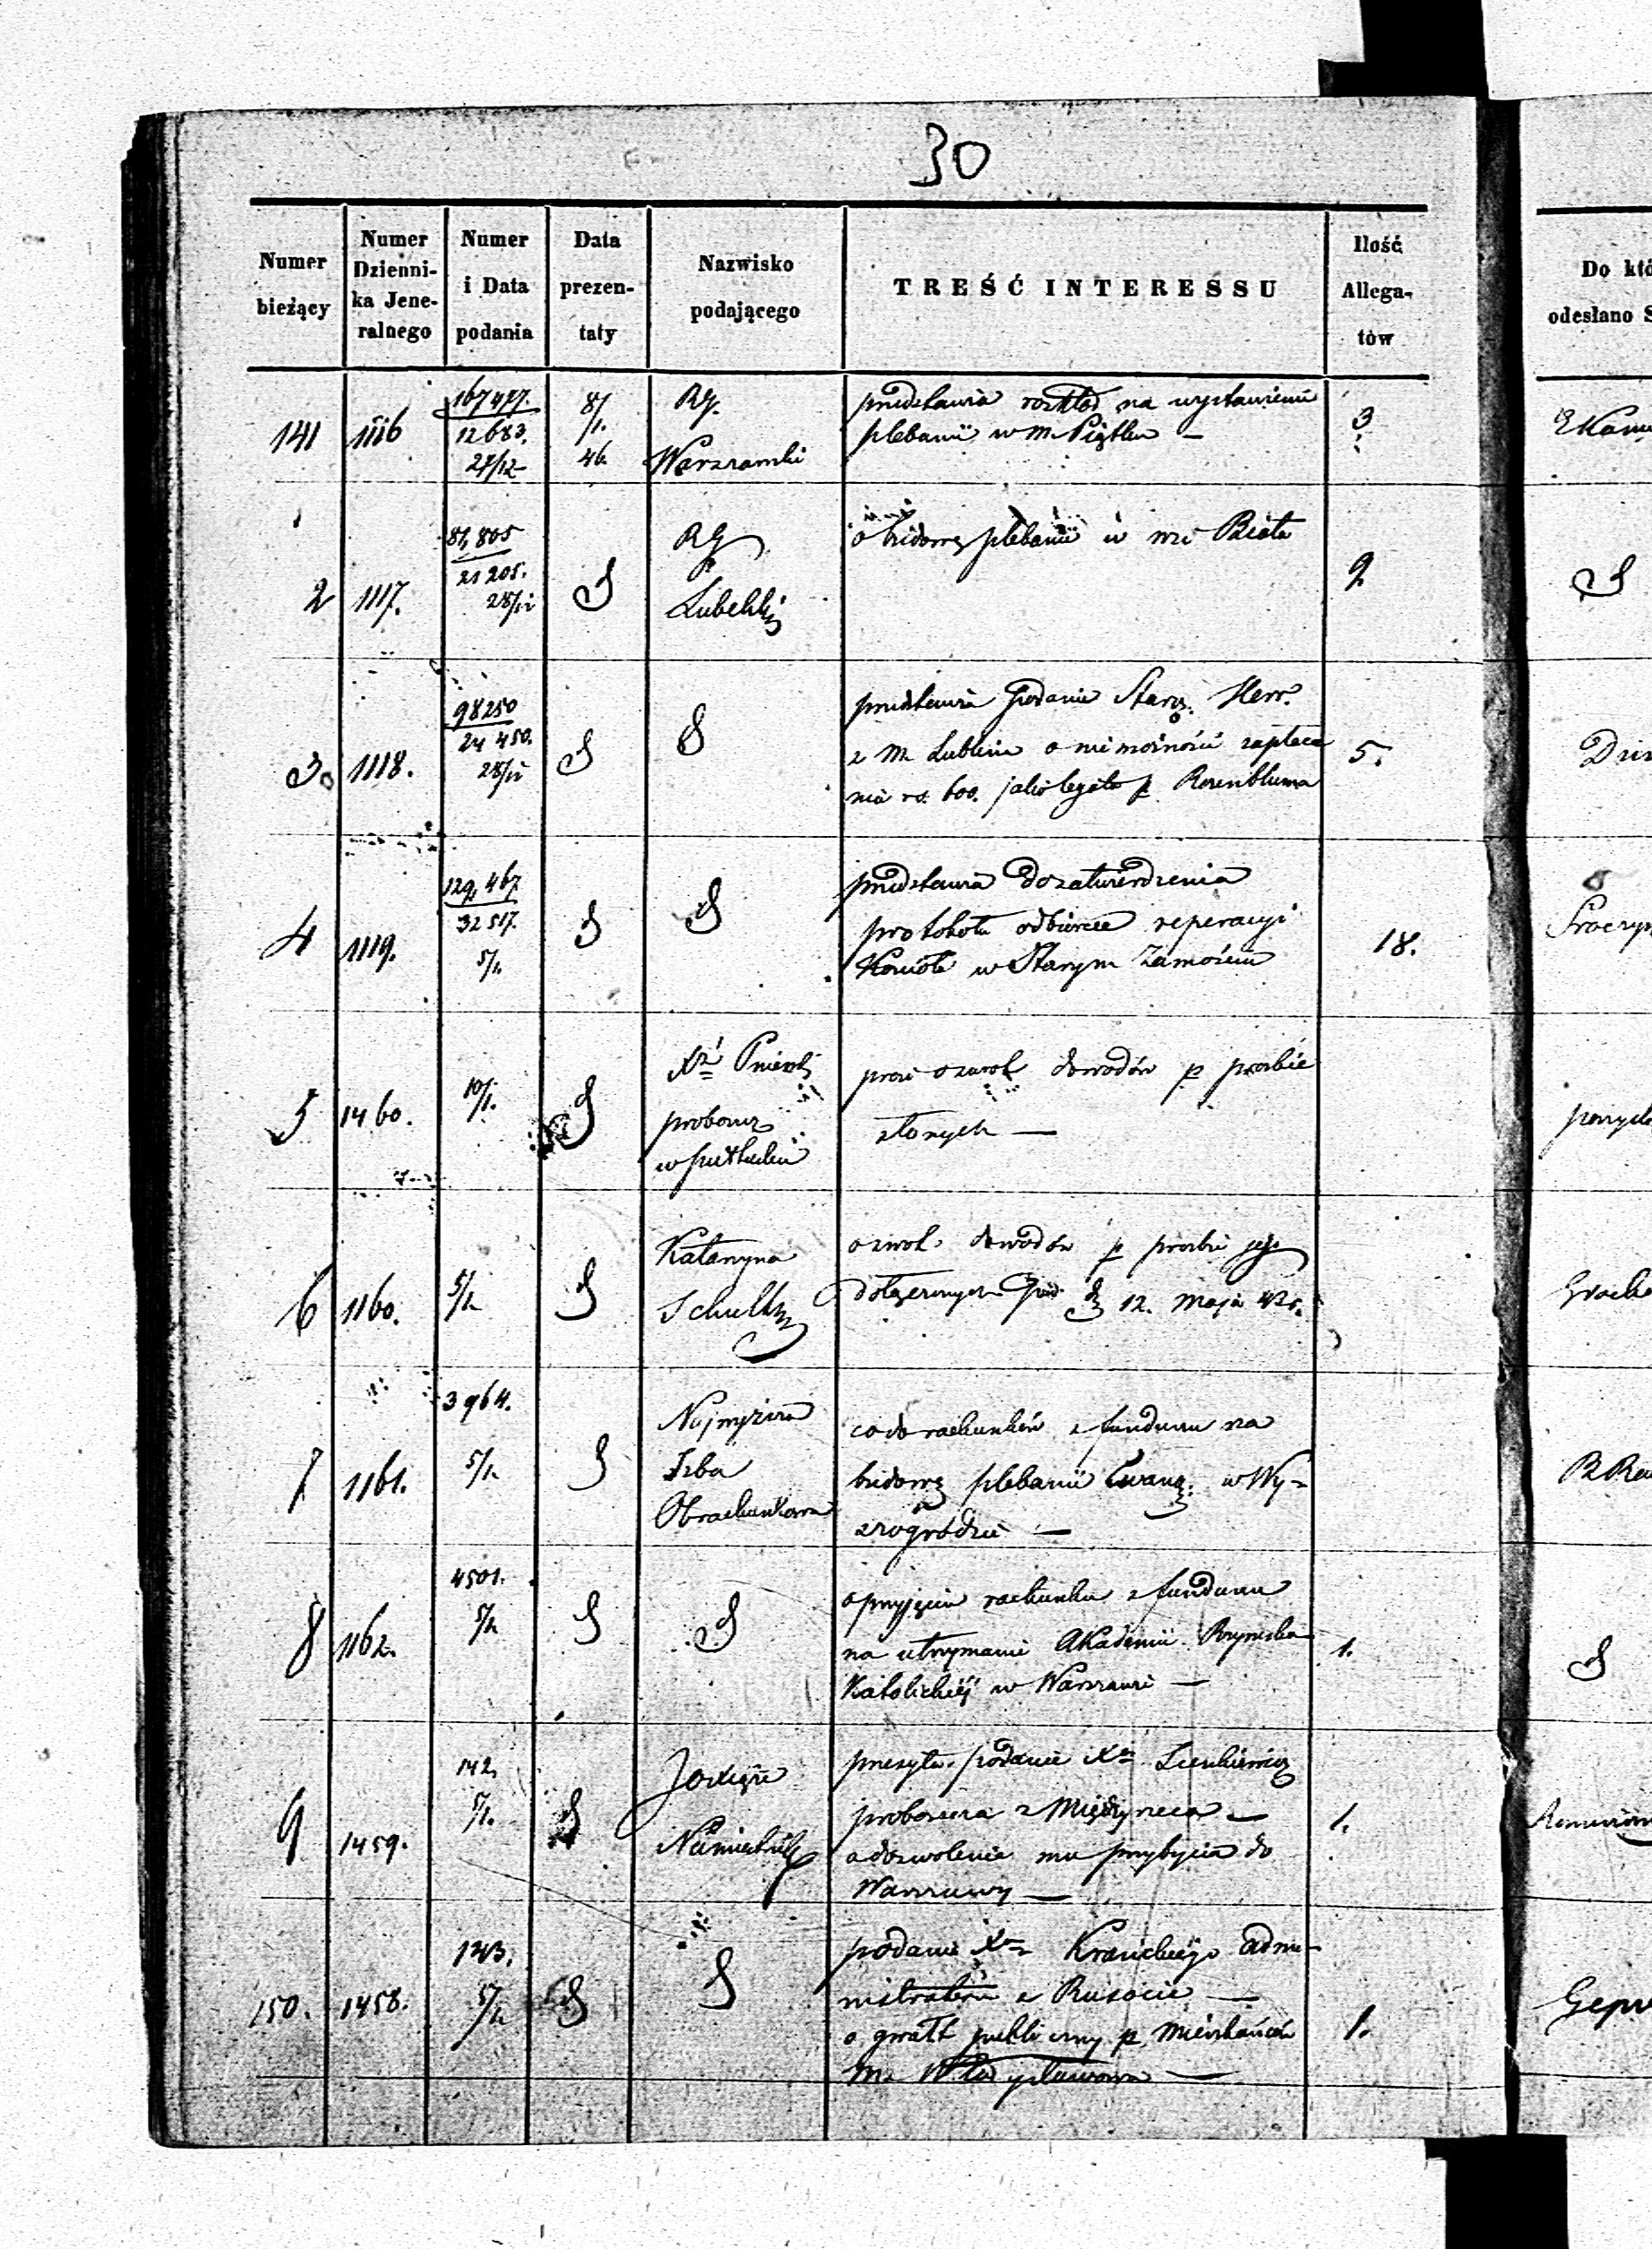 30
Numer bieżący
Numer Dzienni- ka Jene- ralnego
Numer i Data podania
Data prezen- taty
Nazwisko podającego
TREŚĆ INTERESSU
Ilość Allega- tów
Do któ
odesłano S
141 1116 167477. 12683. 27/12 8/1. 46. RG. Warszawski
przedstawia rozkład na wystawienie
plebanii w m. Piątku —
3
2 1117. 81,805 21205. 28/12 RG Lubelski
o budowę plebanii w wsi Biała
9.
3. 1118. 98250 24450. 28/12
przedstawia podanie Starz.
z m. Lublina o niemożności zapłace
nia rs. 600. jako legat p. Rosenbluma
5.
4 1119. 129,467 32517. 5/1.
przedstawia do zatwierdzenia
protokół odbiorcze reperacyi
Kościoła w Starym Zamościu
18.
5 1460. 10/1. proboszcz
prosi o zwrot dowodów p prośbie
złożonych —
6 1160. 5/1. Katarzyna
o zwrot dowodów p prośbie jej
dołączonych 12. maja 42r.
7 1161. 3964. 5/1. Najwyższa Izba Obrachunkowa
co do rachunków z funduszu na
budowę plebanii Ewang: w Wy-
szogrodzie —
8 1162. 4501. 5/1.
o przyjęciu rachunku z funduszu
na utrzymanie Akademii Rzymsko
Katolickiej w Warszawie —
1.
9 1459. 142. 5/1. Xiąże Namiestnik
przesyła podanie Xa
proboszcza z Międzyrzeca —
o dozwolenie mu przybycia do
Warszawy —
1.
150. 1458. 143. 5/1.
podanie Xa Kranickiego admi-
nistratora z Rusocic —
o gwałt publiczny p. mieszkańców
m. Władysławowa —
1.